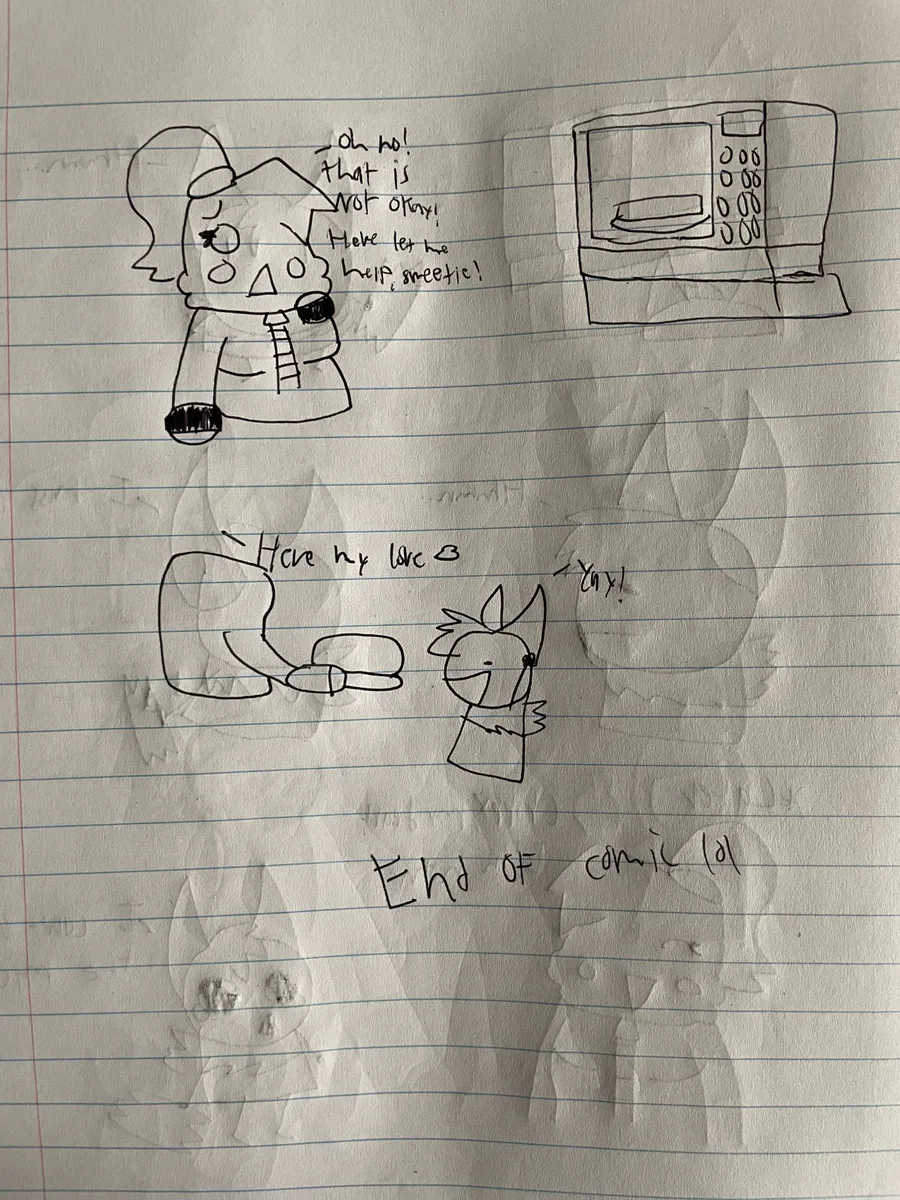 Oh no!
that is
Not okay!
Here let me
help, sweetie!
Here my love <3
Yay!
End of comic lol